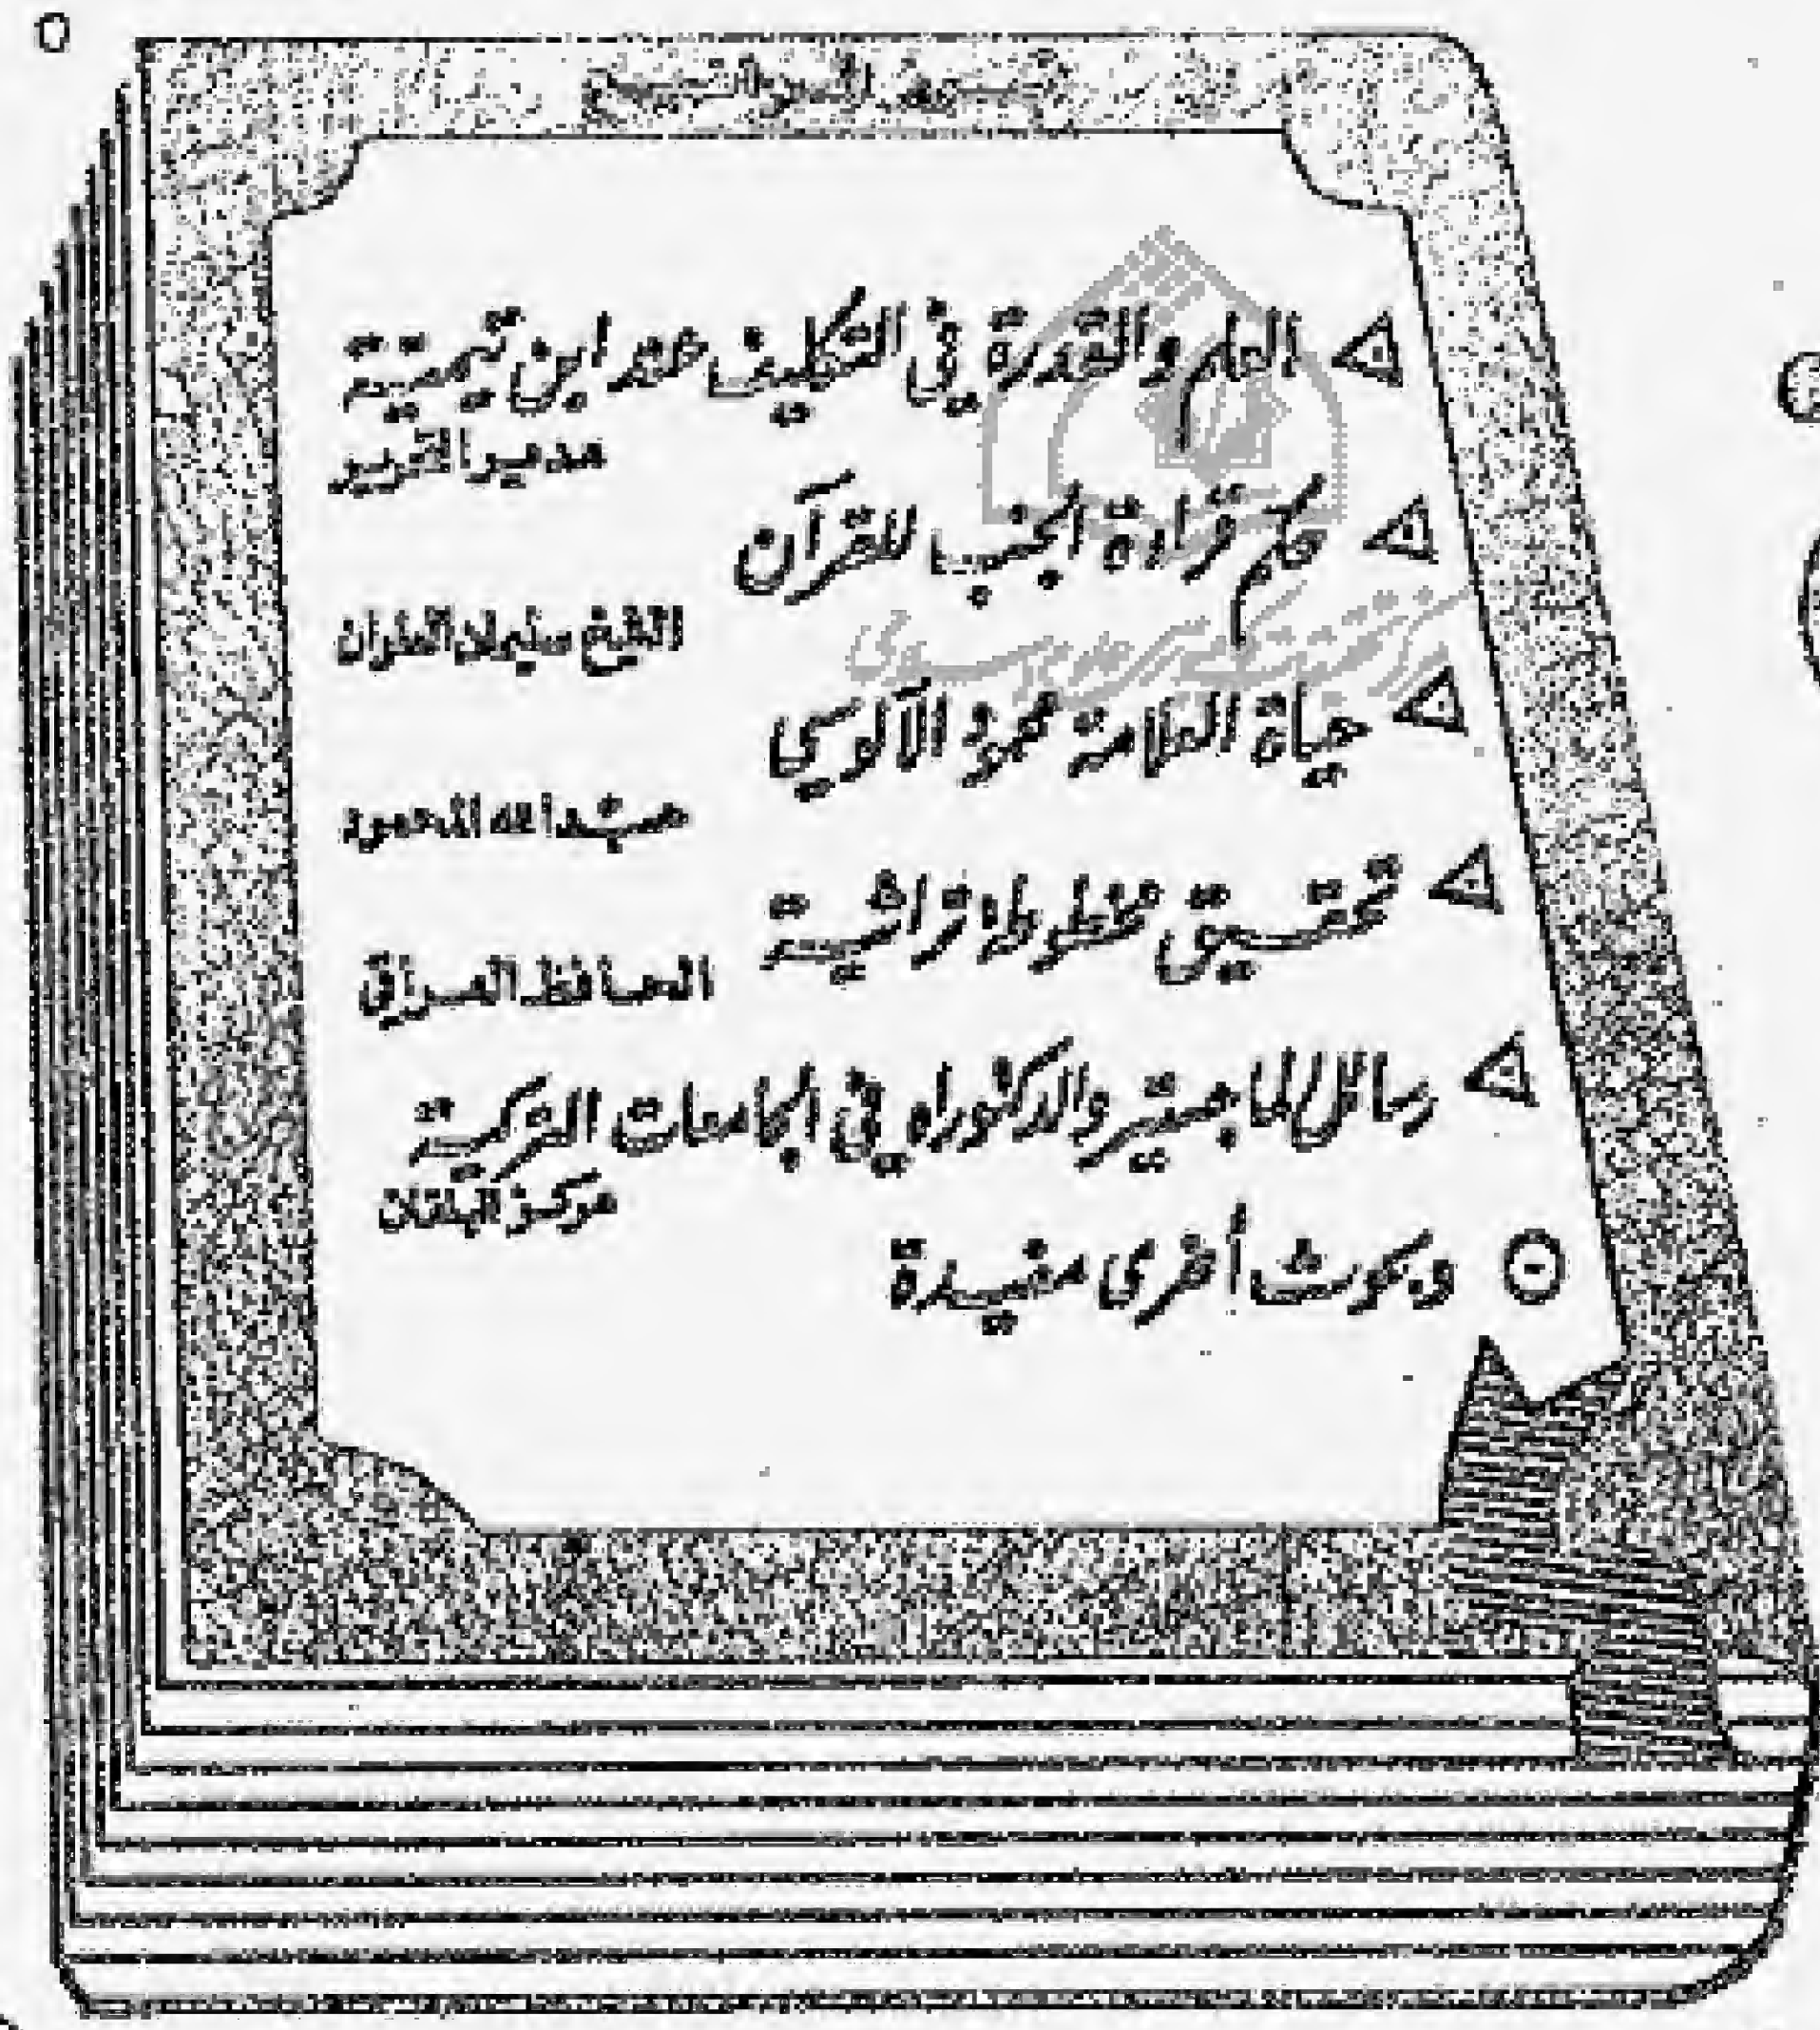 العلم والقدرة في التكليف عند ابن تيمية
مدير التحرير
حكم قراءة الجنب للقرآن
الشيخ
حياة العلامة محمود الآلوسي
عبد الله المحمود
تحقيق مخطوطة تراثية
الحافظ العراقي
رسائل الماجستير والدكتوراه في الجامعات التركية
مركز البلقان
وبحوث أخرى مفيدة